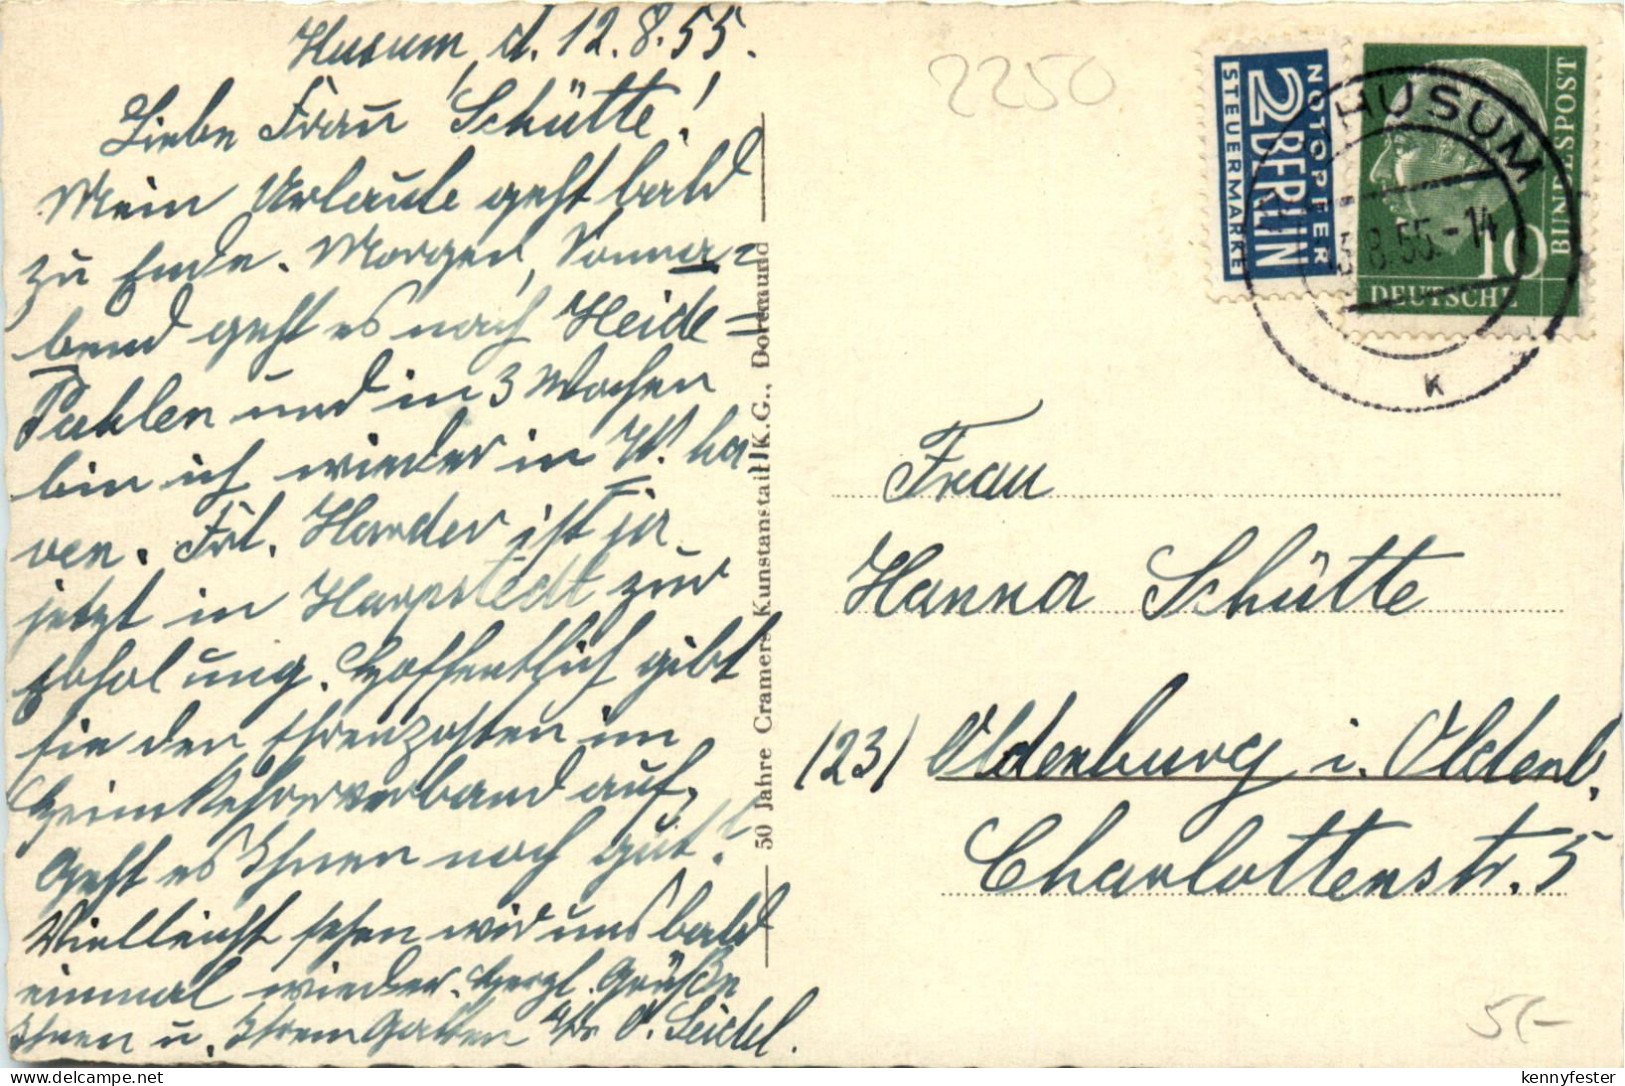 Husum, d. 12.8.55.
Liebe Frau Schütte!
Mein Urlaub geht bald
zu Ende. Morgen, Sonna=
bend geht es nach Heide=
Pahlen und in 3 Wochen
bin ich wieder in W. ha
ven. Frl. Harder ist ja
jetzt in Harpstedt zur
Erholung. Hoffentlich gibt
sie den Ehrenposten im
Heimkehrerverband auf.
Geht es Ihnen noch gut?
Vielleicht sehen wir uns bald
einmal wieder. Herzl. Grüße
Ihnen u. Ihrem Gatten Ihr O. Seidel.
50 Jahre Cramers Kunstanstalt K.G., Dortmund
2250
NOTOPFER
2 BERLIN
STEUERMARKE
HUSUM
5.8.55.-14
K
10
DEUTSCHE
BUNDESPOST
Frau
Hanna Schütte
(23) Oldenburg i. Oldenb.
Charlottenstr. 5
5/-
kennyfester